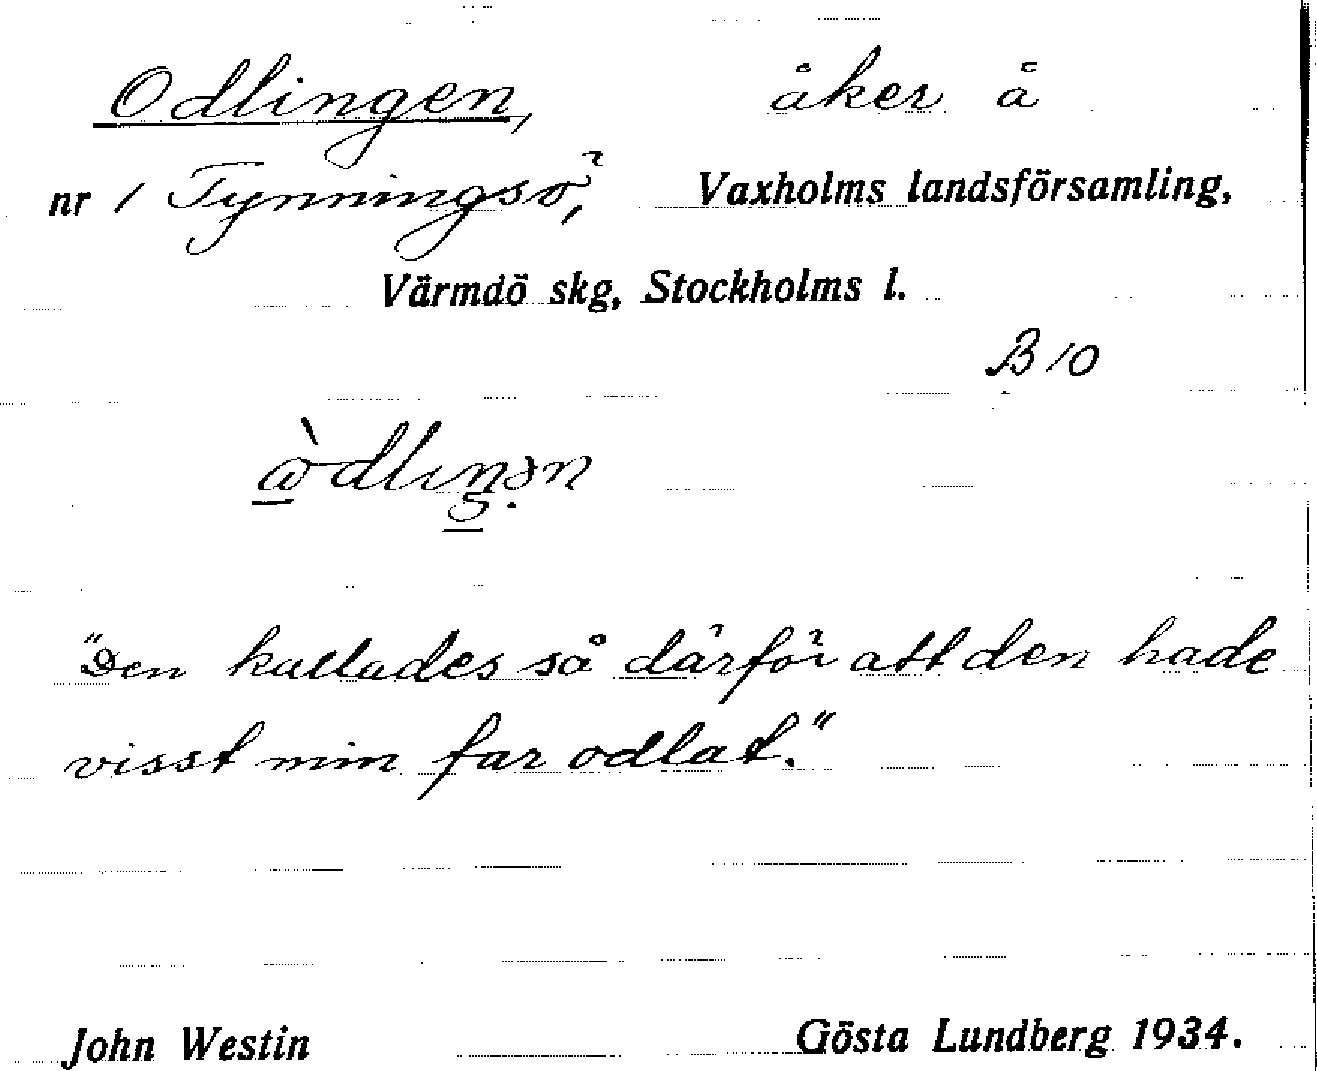 Odlingen, åker å
nr 1 Tynningsö, Vaxholms landsförsamling,
Värmdö skg, Stockholms l.
B 10
"Den kallades så därför att den hade
visst min far odlat."
John Westin Gösta Lundberg 1934.